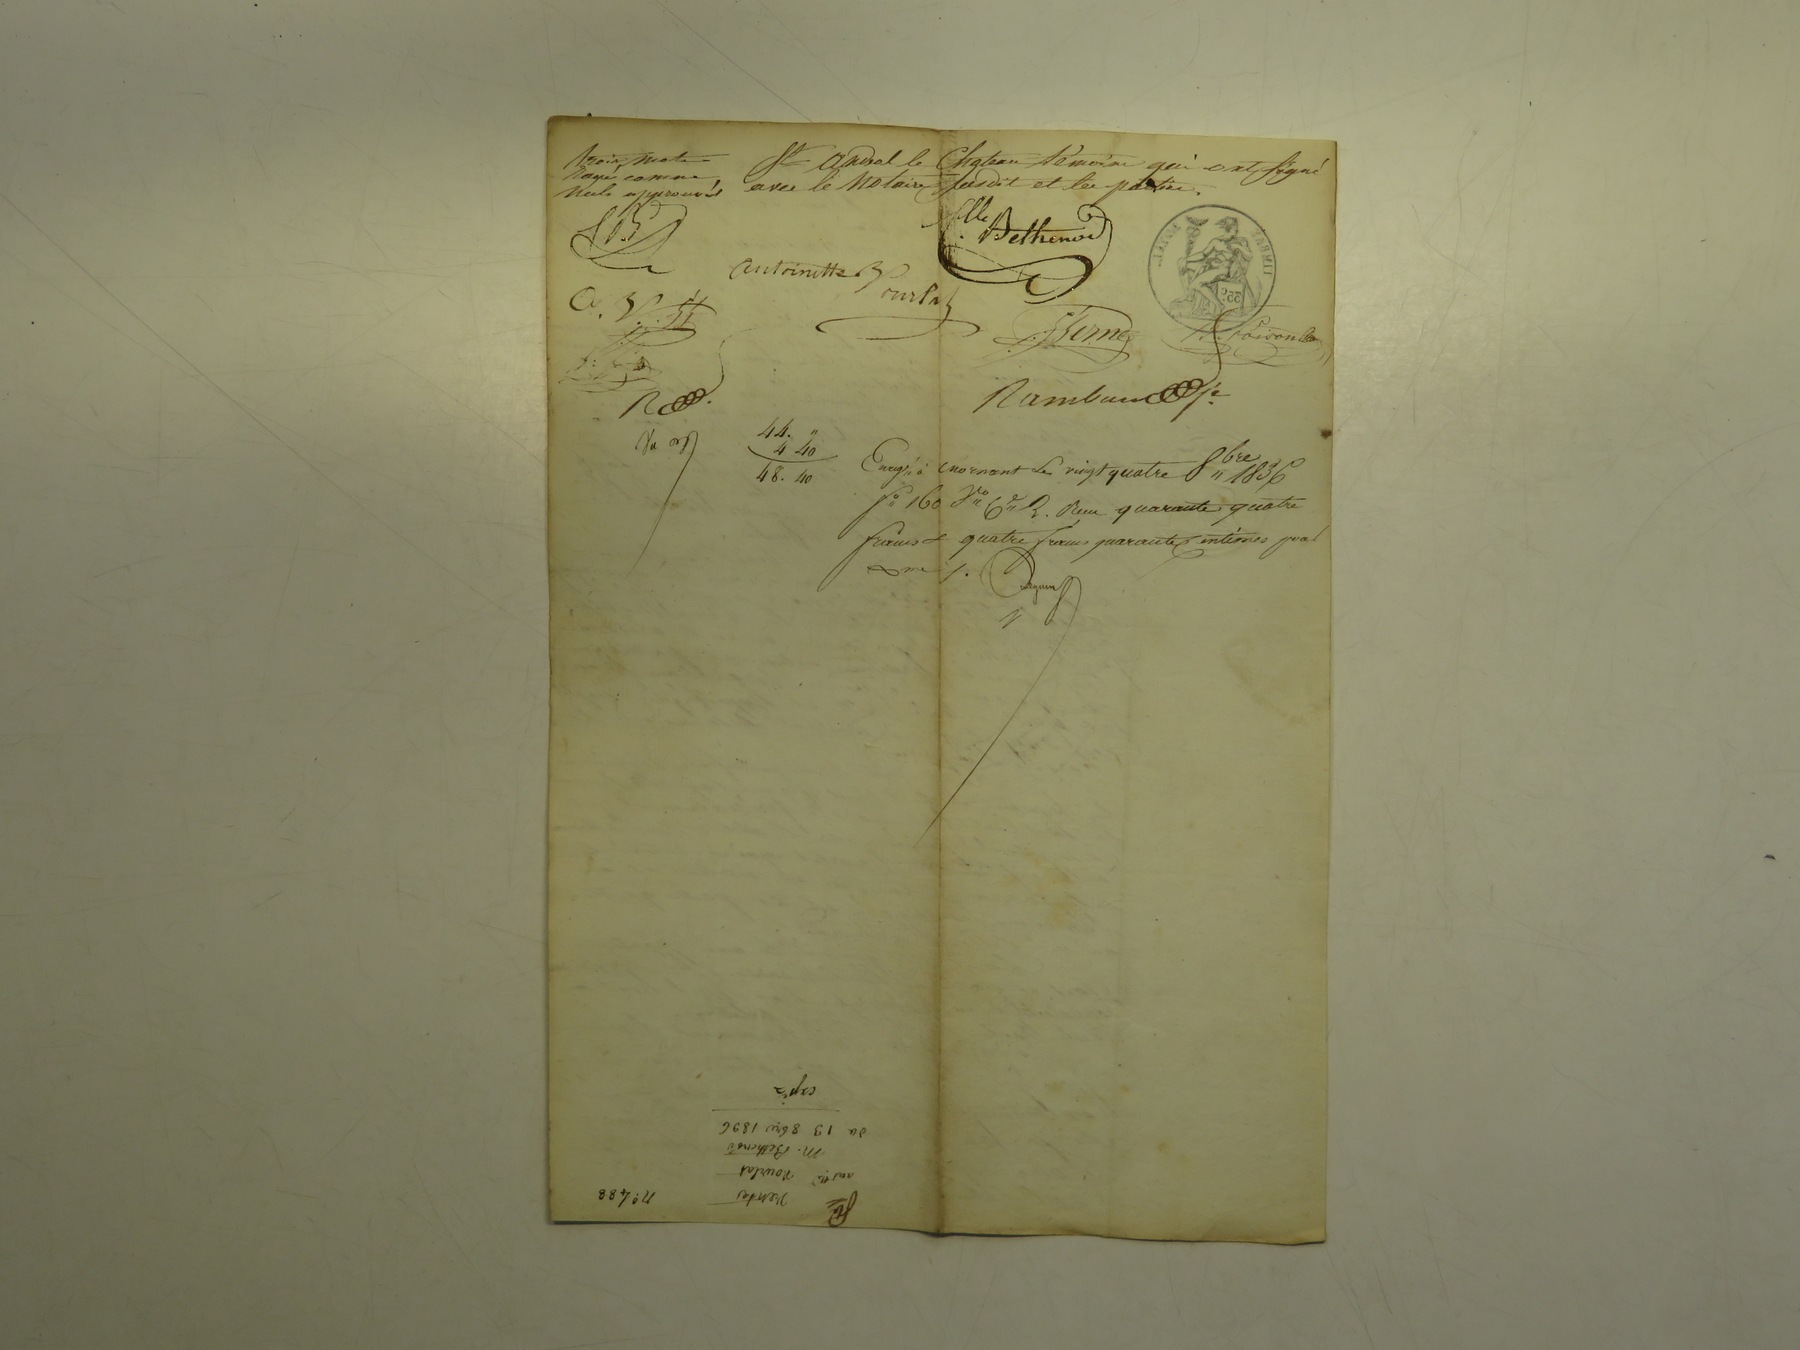 trois mots
rayés comme
nuls approuvés
St Andéol le Château témoins qui ont signé
avec le Notaire susdit et les parties.
fB
flle Bethenod
Antoinette Bourlat
A. V. ft
Berne
Poisonn
R
Rambaud Jne
44. "
4 40
48. 40
Enregé à Mornant le vingt quatre 8bre 1836
fo 160 Vro Cse 2. Reçu quarante quatre
francs & quatre francs quarante Centimes pour
Xme /.
No 488
Vente
Ante Bourlat
M. Bethenod
du 19 8bre 1836
expée